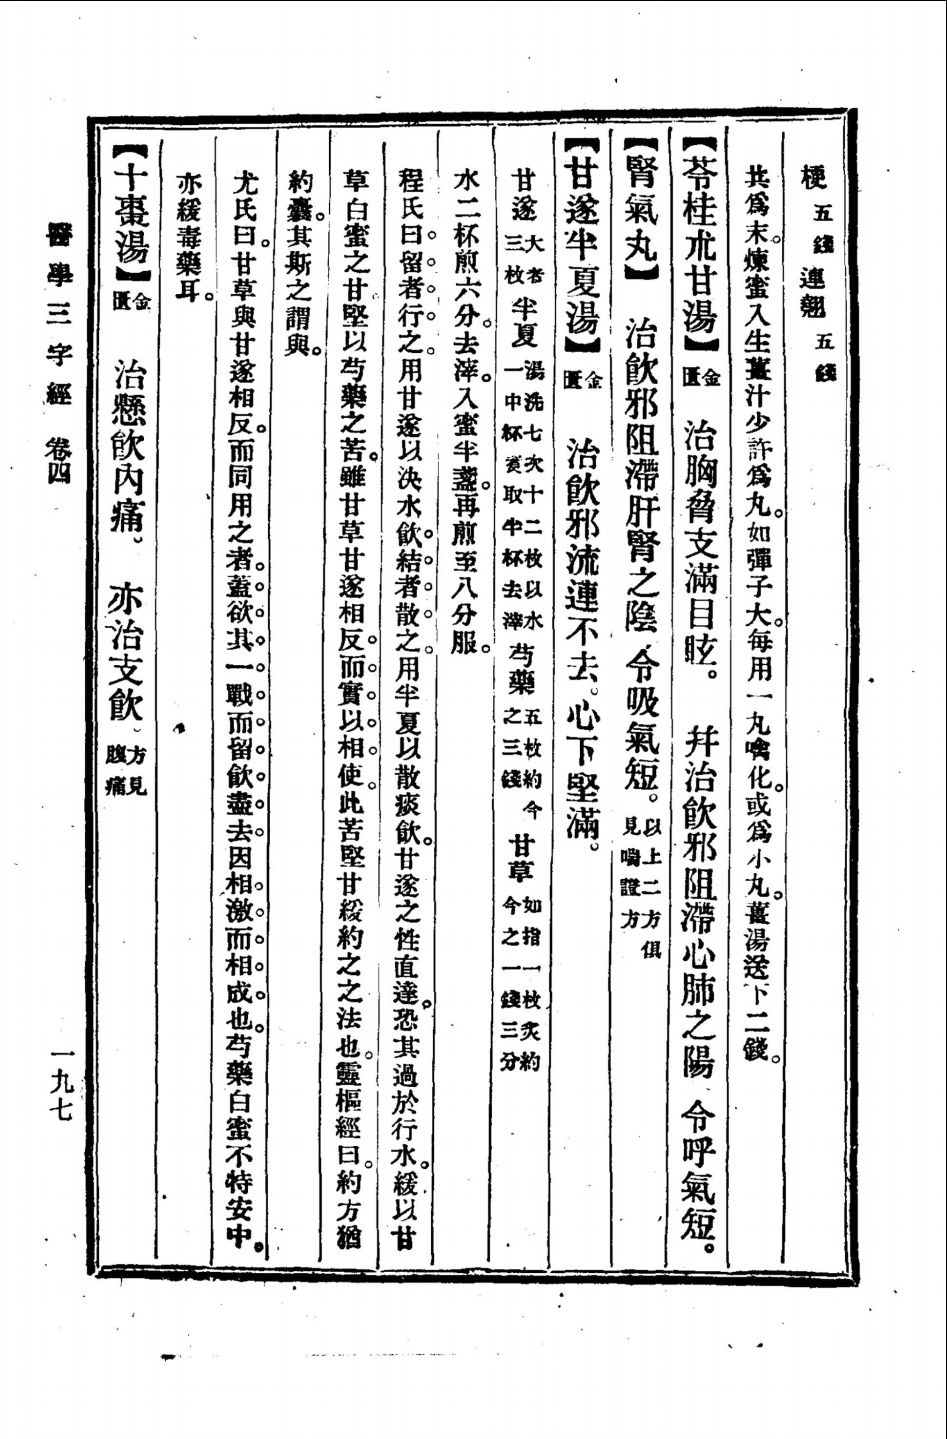 梗五錢連翹五錢
共爲末。煉蜜入生薑汁少許爲丸。如彈子大。每用一丸噙化。或爲小丸。薑湯送下二錢。
【苓桂朮甘湯】金匱　治胸脅支滿目眩。　并治飲邪阻滯心肺之陽　令呼氣短。
【腎氣丸】　治飲邪阻滯肝腎之陰、令吸氣短。以上二方俱見喘證方
【甘遂半夏湯】金匱　治飲邪流連不去。心下堅滿。
甘遂大者三枚半夏湯洗七次十二枚以水一中杯煑取半杯去滓芍藥五枚約今之三錢甘草如指一枚炙約今之一錢三分
水二杯煎六分。去滓。入蜜半盞。再煎至八分服。
程氏曰。留者行之。用甘遂以決水飲。結者散之。用半夏以散痰飲。甘遂之性直達。恐其過於行水。緩以甘
草白蜜之甘。堅以芍藥之苦。雖甘草甘遂相反。而實以相使。此苦堅甘緩約之之法也。靈樞經曰。約方猶
約囊。其斯之謂與。
尤氏曰。甘草與甘遂相反。而同用之者。蓋欲其一戰而留飲盡去。因相激而相成也。芍藥白蜜不特安中。
亦緩毒藥耳。
【十棗湯】金匱　治懸飲內痛。　亦治支飲。方見腹痛
醫學三字經　卷四
一九七